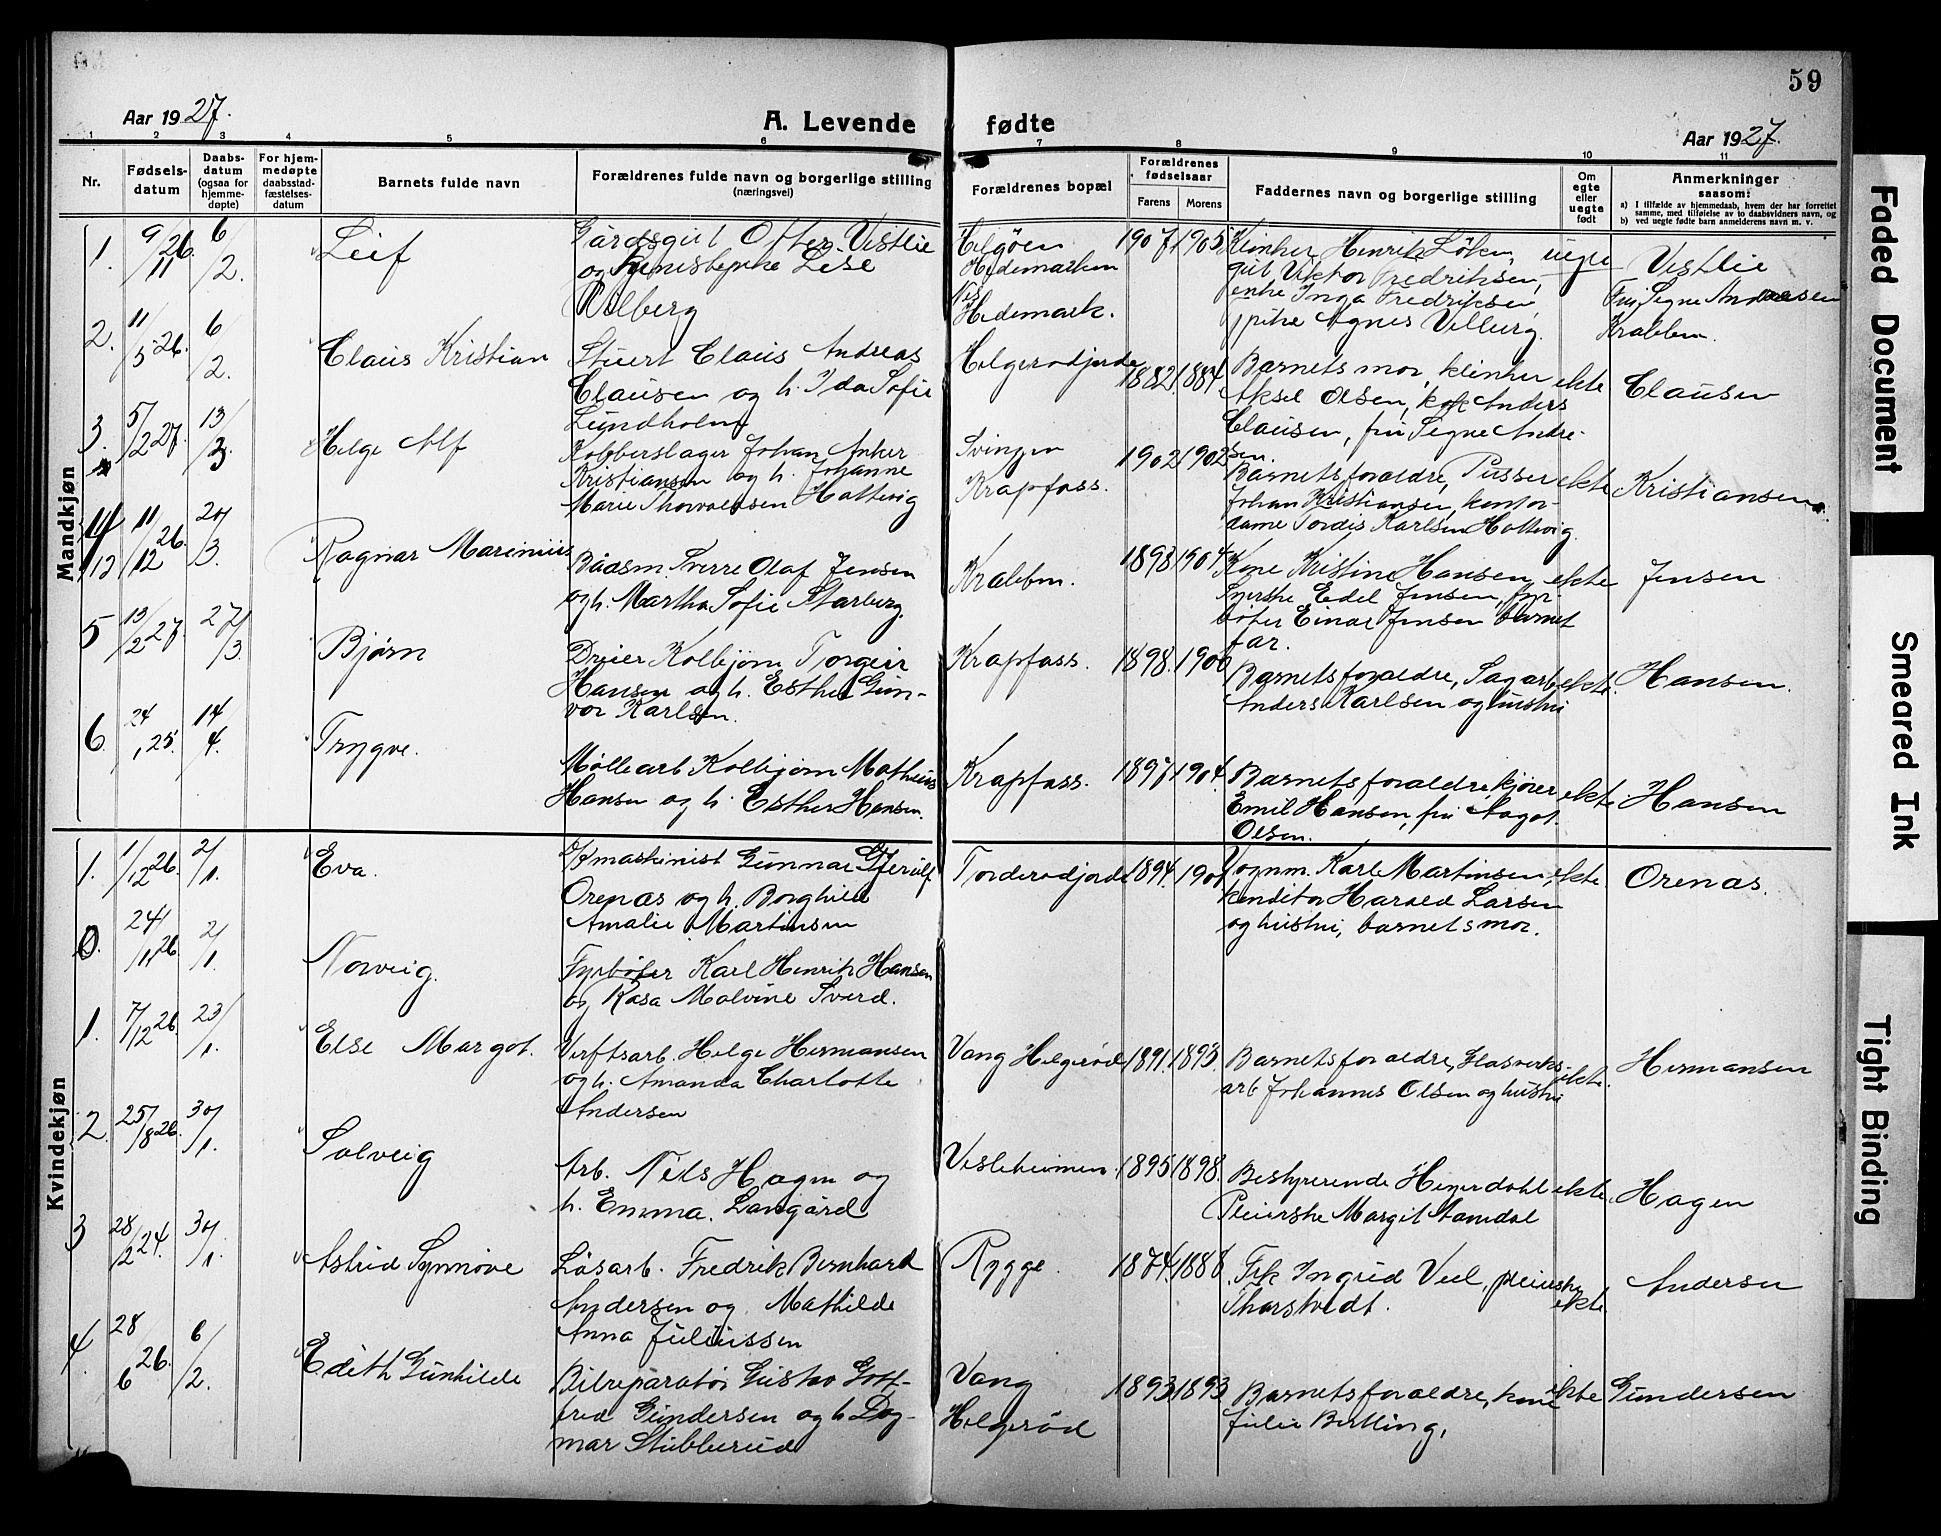 59
Aar 1927.
A. Levende fødte
Aar 1927.
1 2 3 4 5 6 7 8 9 10 11
Nr.
Fødsels-
datum
Daabs-
datum
(ogsaa for
hjemme-
døpte)
For hjem-
medøpte
daabsstad-
fæstelses-
datum
Barnets fulde navn
Forældrenes fulde navn og borgerlige stilling
(næringsvei)
Forældrenes bopæl
Forældrenes
fødselsaar
Farens
Morens
Faddernes navn og borgerlige stilling
Om
egte
eller
uegte
født
Anmerkninger
saasom:
a) I tilfælde av hjemmedaab, hvem der har forrettet
samme, med tilføielse av to daabsvidners navn, og
b) ved uegte fødte barn anmelderens navn m. v.
Mandkjøn
1. 9/11 26. 6/2. Leif
Gårdsgut Otter Vestlie
og tjenestepike Lise
Helgøen
Hedemarken
Nes
Hedemark.
1907. 1905
Klinker Henrik Löken,
gut Viktor Fredriksen,
enke Inga Fredriksen
pike Agnes
uegte
Vestlie
Frú Signe Andreasen
Krabben.
2. 11/5 26. 6/2. Claus Kristian
Stuert Claus Andreas
Clausen og h. Ida Sofie
Lundholm
Helgerødjorde
1882. 1884.
Barnets mor, klinker
Aksel Olsen, kok Anders
Clausen, frú Signe Andre-
sen.
ekte
Clausen
3. 5/2 27. 13/3 Helge Alf
Kobberslager Johan Anker
Kristiansen og h. Johanne
Marie Thorvaldsen Holtevig
Svingen
Krapfoss.
1902. 1902
Barnets foraldre, Pusser
Johan Kristiansen, kontor-
dame Tordis Karlsen Holtevig.
ekte
Kristiansen
4 11/12 26. 20/3. Ragnar Marinius
Bådsm. Sverre Olaf Jensen
og h. Martha Sofie Starberg.
Krabben.
1893. 1904.
Kone Kristine Hansen,
Syerske Edel Jensen, fyr-
böter Einar Jensen barnets
far.
ekte
Jensen
5 13/2 27. 27/3. Bjørn
Dreier Kolbjørn Torgeir
Hansen og h. Esther Gun-
vor Karlsen.
Krapfoss.
1898. 1900
Barnets foraldre, Sagarb.
Anders Karlsen og hustru
ekte.
Hansen.
6. 24/1 25. 14/4. Trygve.
Møllearb Kolbjørn Mathius
Hansen og h. Esther Hansen.
Krapfoss.
1897. 1904.
Barnets foraldre kjører
Emil Hansen, frú Aagot
Olsen.
ekte.
Hansen
Kvindekjøn
1. 1/12 26. 2/1. Eva.
maskinist Gunnar Gjerulf
Orenas og h. Borghild
Amalie Martinsen
Torderødjorde
1894.
Vognm. Karl Martinsen,
konditor Harald Larsen
og hustru, barnets mor.
ekte
Orenas.
0. 24/11 26. 2/1. Norveig.
Fyrböter Karl Henrik Hansen
og Rosa Malvine Sverd.
1. 7/12 26. 23/1. Else Margot.
Verftsarb. Helge Hermansen
og h. Amanda Charlotte
Andersen
Vang Helgerød
1891. 1893.
Barnets foraldre, Glasverks-
arb Johannes Olsen og hustru
ekte.
Hermansen
2. 25/8 26. 30/1. Solveig
Arb. Nils Hagen og
h. Emma. Langård
Vesleheimen.
1895 1898.
Bestyrerinde Heyerdahl
Pleierske Margit Aamdal
ekte.
Hagen
3 28/2 24. 30/1. Astrid Synnøve
Løsarb. Fredrik Bernhard
Andersen og Mathilde
Anna Juliussen
Rygge.
1874. 1888
Frk Ingrid Veel, pleierske
Tharstvedt.
ekte.
Andersen
4. 28/6 26. 6/2. Edith Gunhilde
Bilreparatør Gustav Gott-
fred Gundersen og h Dag-
mar Stubberud
Vang
Helgerød
1893 1893
Barnets foraldre, kone
Julie Butling,
ekte
Gundersen
Faded Document
Smeared Ink
Tight Binding